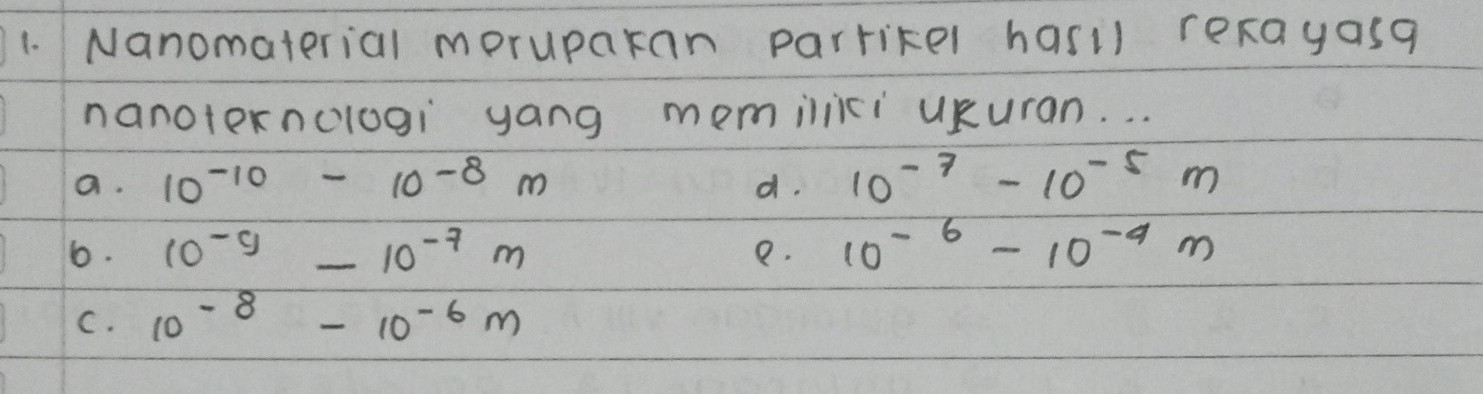 1. Nanomaterial merupakan partikel hasil rekayasa
nanoteknologi yang memiliki ukuran...
a. 10⁻¹⁰ - 10⁻⁸ m d. 10⁻⁷ - 10⁻⁵ m
b. 10⁻⁹ - 10⁻⁷ m e. 10⁻⁶ - 10⁻⁴ m
c. 10⁻⁸ - 10⁻⁶ m